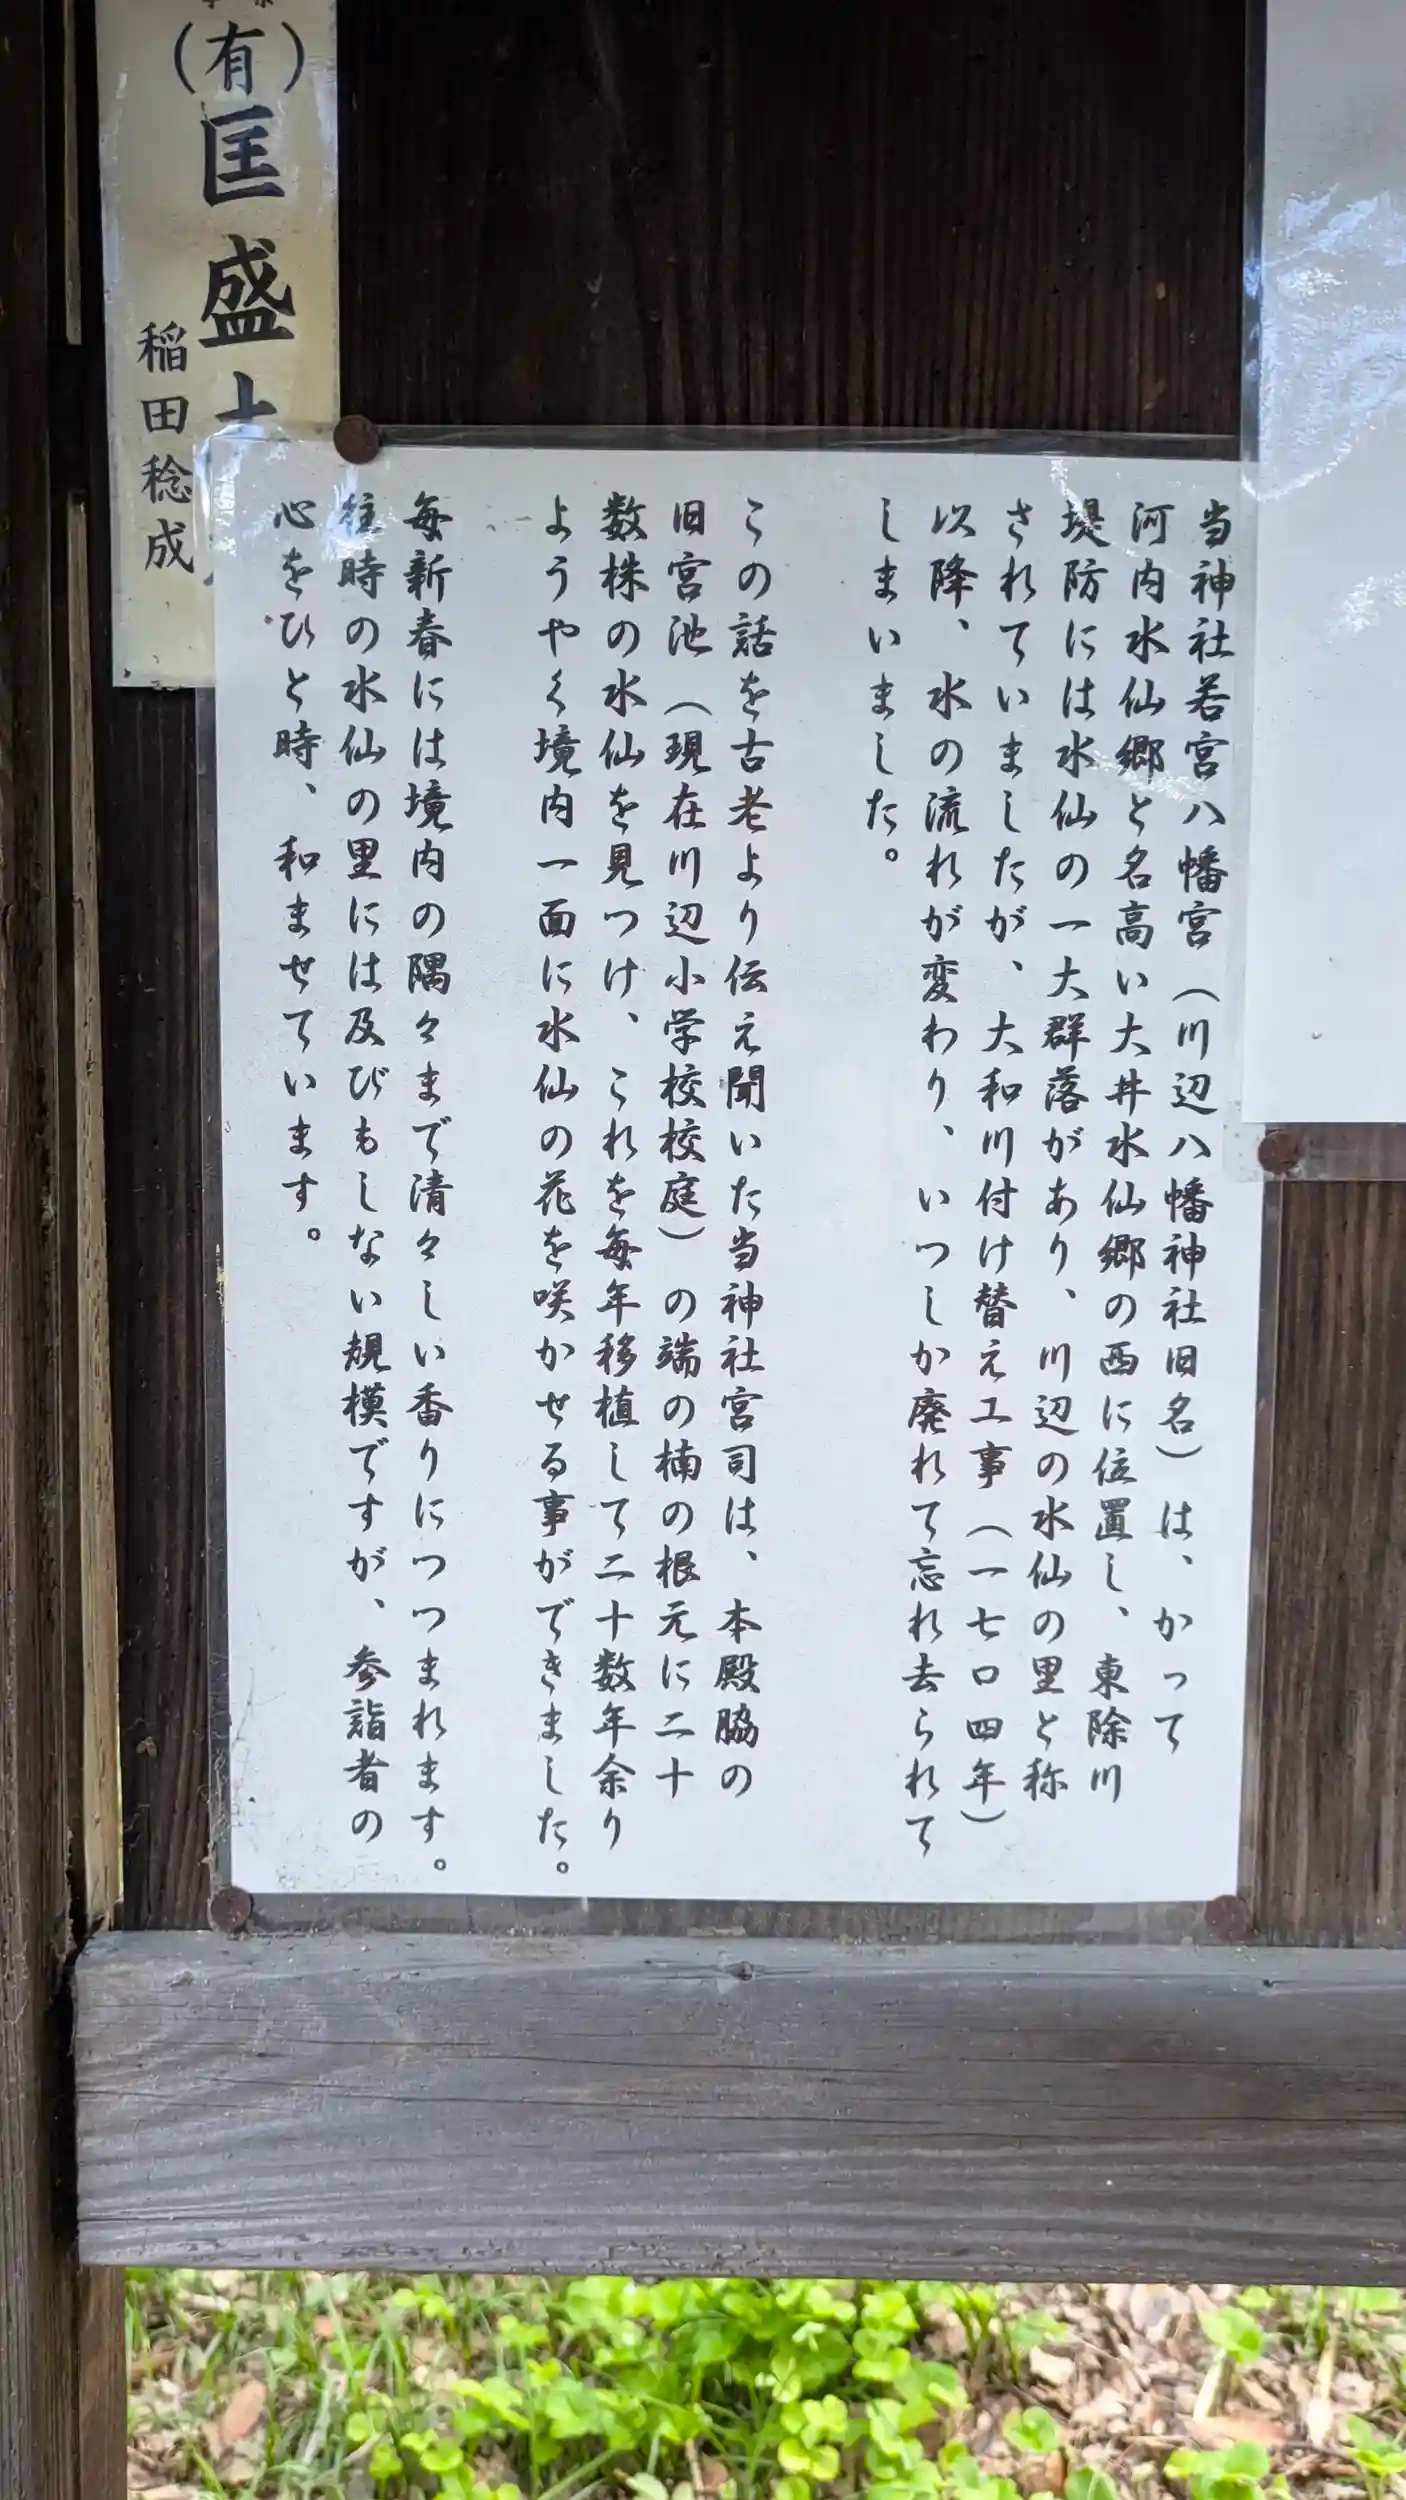 当神社若宮八幡宮（川辺八幡神社旧名）は、かって
河内水仙郷と名高い大井水仙郷の西に位置し、東除川
堤防には水仙の一大群落があり、川辺の水仙の里と称
されていましたが、大和川付け替え工事（一七〇四年）
以降、水の流れが変わり、いつしか廃れて忘れ去られて
しまいました。
この話を古老より伝え聞いた当神社宮司は、本殿脇の
旧宮池（現在川辺小学校校庭）の端の楠の根元に二十
数株の水仙を見つけ、これを毎年移植して二十数年余り
ようやく境内一面に水仙の花を咲かせる事ができました。
毎新春には境内の隅々まで清々しい香りにつつまれます。
往時の水仙の里には及びもしない規模ですが、参詣者の
心をひと時、和ませています。
（有）匡盛
稲田稔成